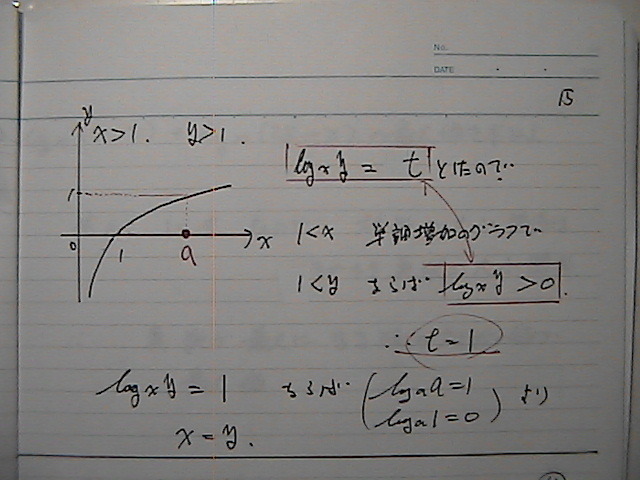 No.
DATE
15
y
x>1. y>1.
1
0
1
a
x
log x y = t とおたので
1<x 単調増加のグラフで
1<y ならば log x y >0.
∴ t=1
log x y = 1 ならば (log a a=1 log a 1=0) より
x=y.